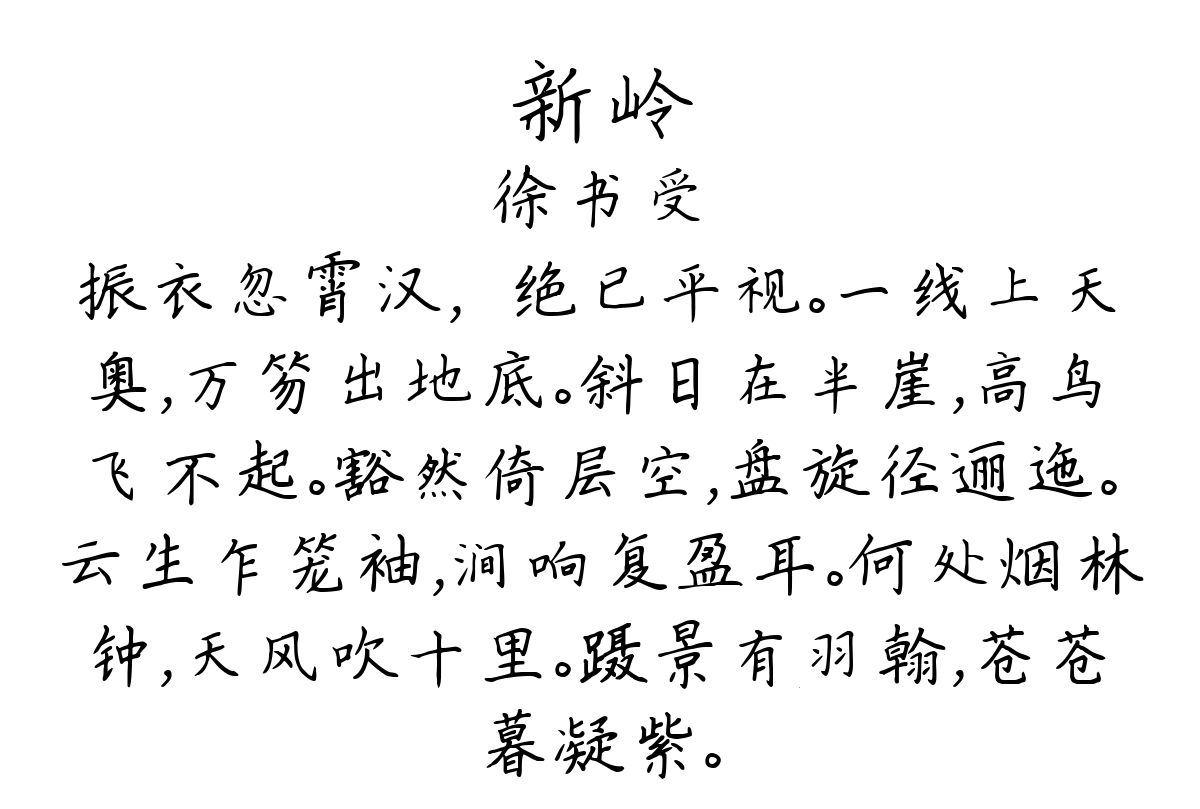 新岭
徐书受
振衣忽霄汉，绝已平视。一线上天
奥,万笏出地底。斜日在半崖,高鸟
飞不起。豁然倚层空,盘旋径逦迤。
云生乍笼袖,涧响复盈耳。何处烟林
钟,天风吹十里。蹑景有羽翰,苍苍
暮凝紫。